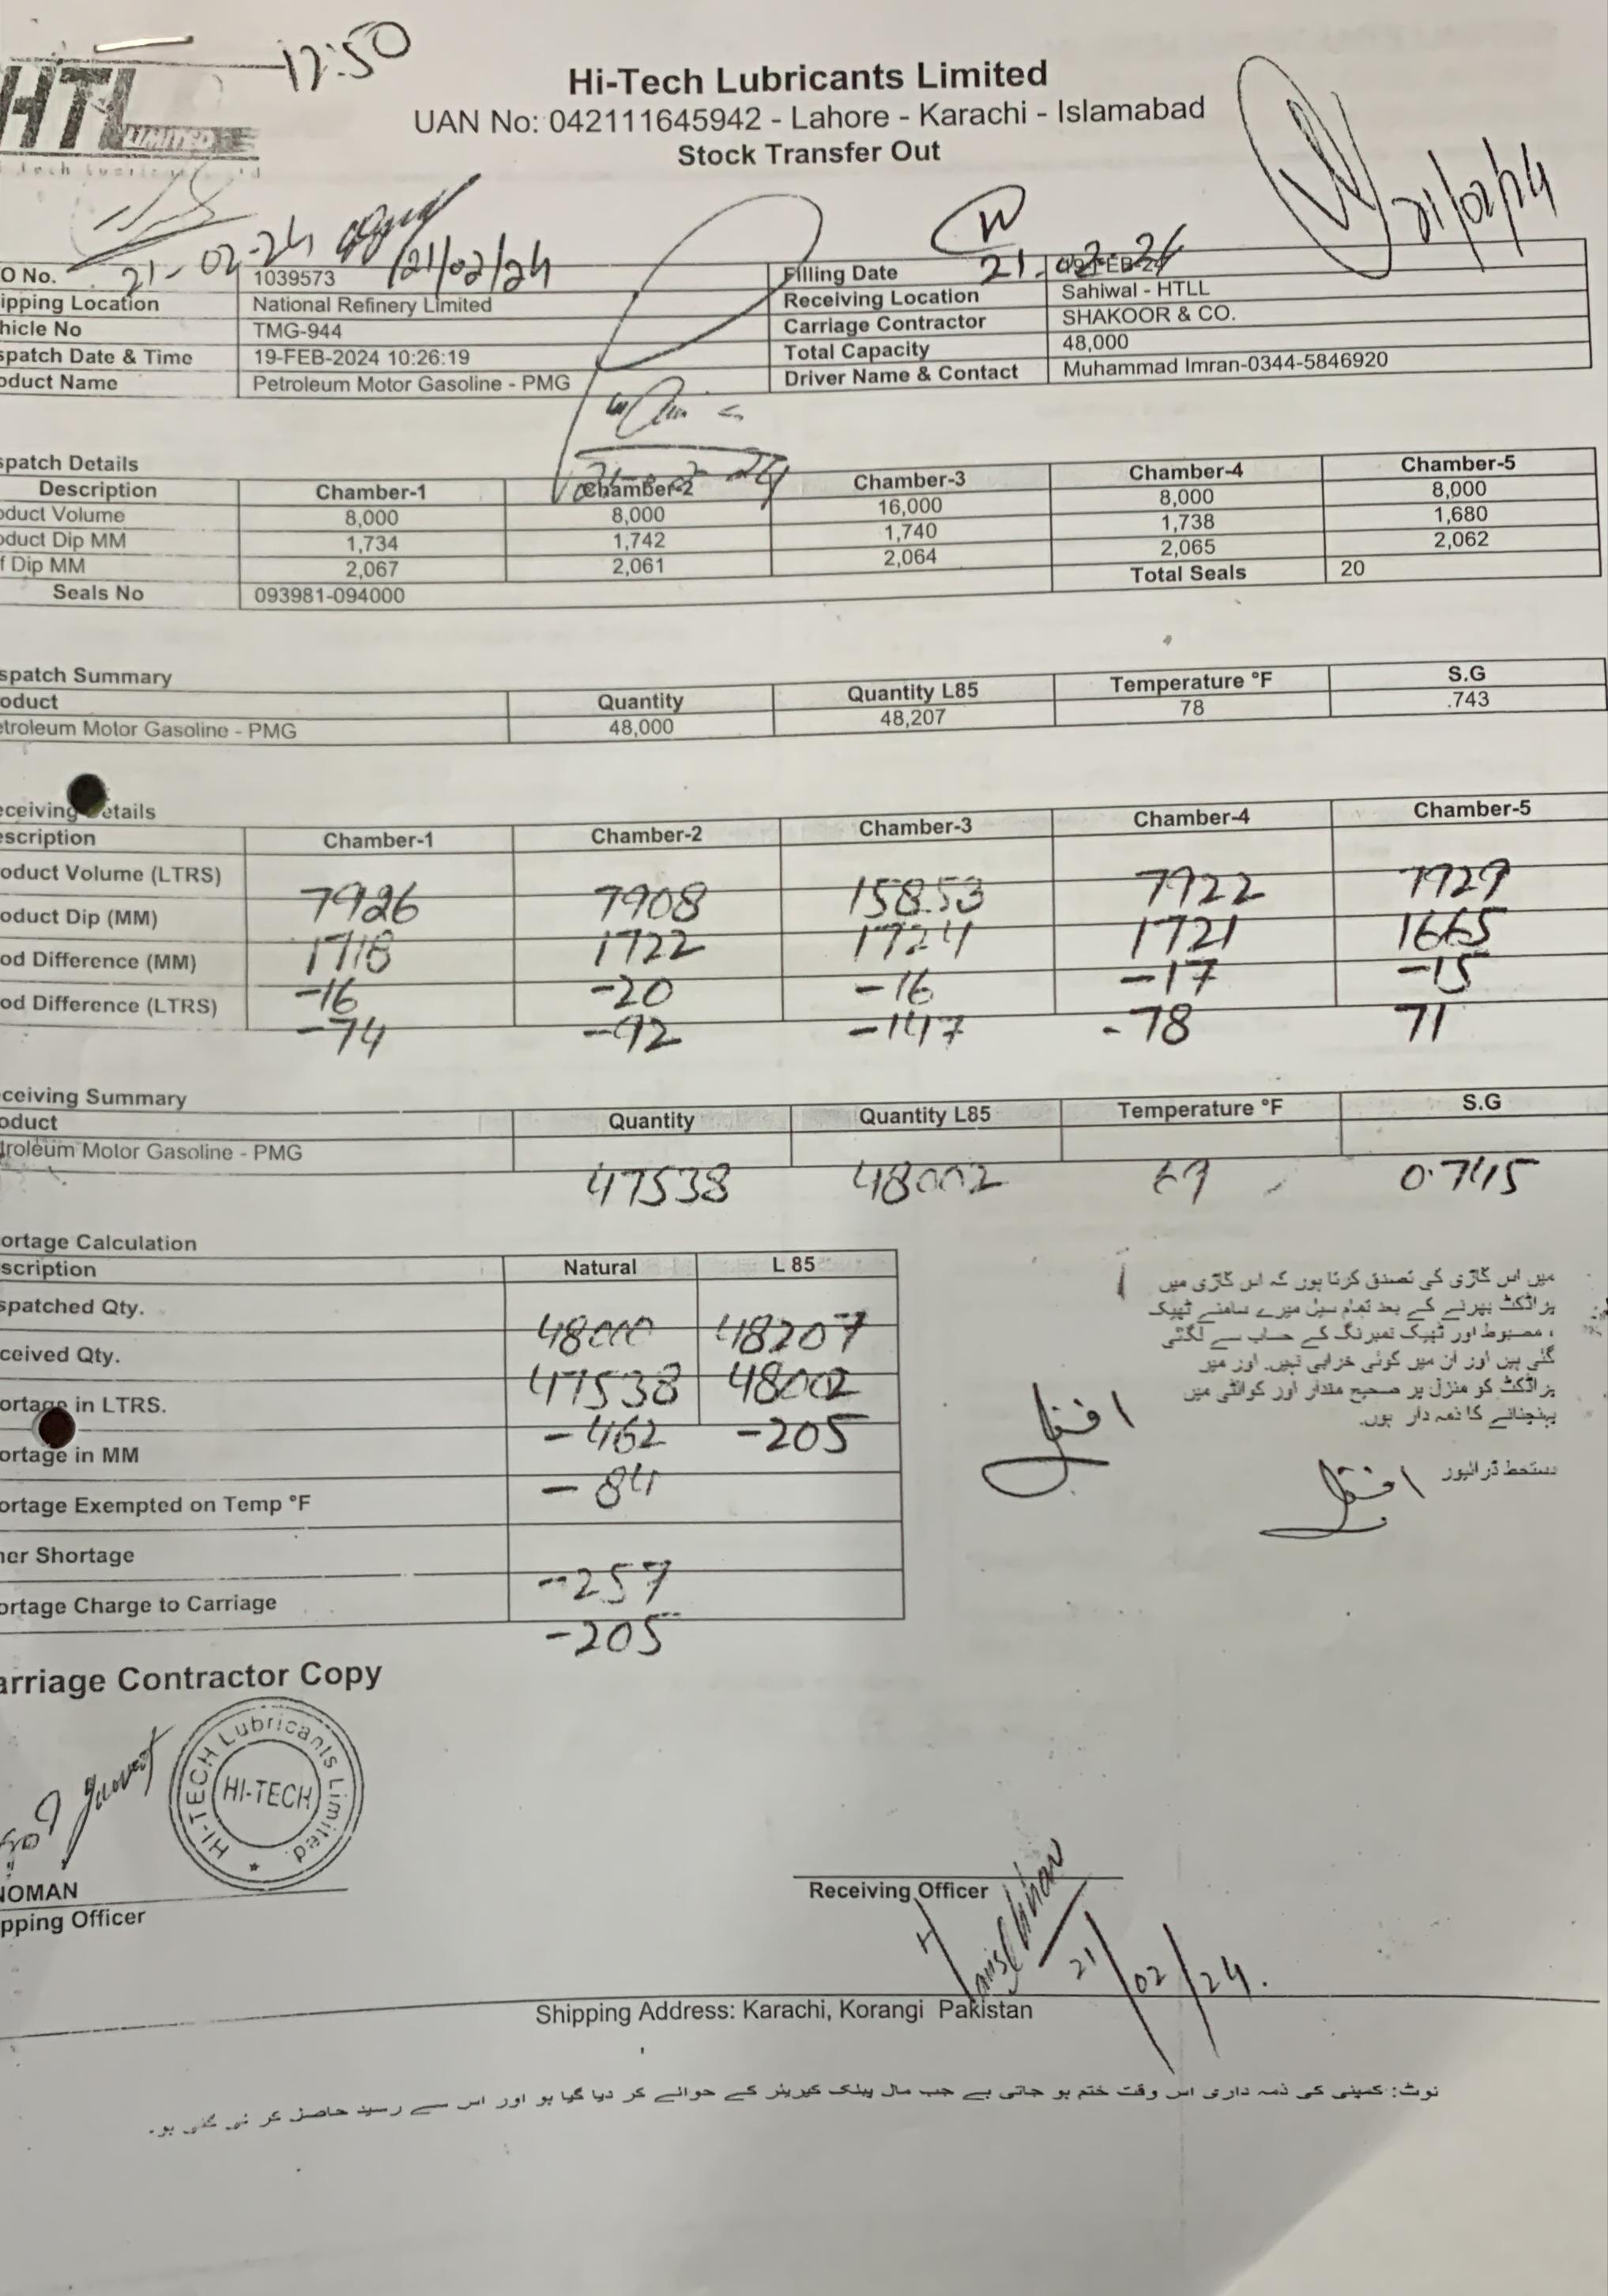 17:50
HTL
LIMITED
Hi-Tech Lubricants Limited
UAN No: 042111645942 - Lahore - Karachi - Islamabad
Stock Transfer Out
21/02/24
21-02-24 21/02/24
21-02-24
O No. 1039573 Filling Date 19-FEB-24
ipping Location National Refinery Limited Receiving Location Sahiwal - HTLL
hicle No TMG-944 Carriage Contractor SHAKOOR & CO.
spatch Date & Time 19-FEB-2024 10:26:19 Total Capacity 48,000
oduct Name Petroleum Motor Gasoline - PMG Driver Name & Contact Muhammad Imran-0344-5846920
spatch Details
Description Chamber-1 Chamber-2 Chamber-3 Chamber-4 Chamber-5
oduct Volume 8,000 8,000 16,000 8,000 8,000
oduct Dip MM 1,734 1,742 1,740 1,738 1,680
f Dip MM 2,067 2,061 2,064 2,065 2,062
Seals No 093981-094000 Total Seals 20
spatch Summary
oduct Quantity Quantity L85 Temperature °F S.G
etroleum Motor Gasoline - PMG 48,000 48,207 78 .743
eceiving Details
escription Chamber-1 Chamber-2 Chamber-3 Chamber-4 Chamber-5
oduct Volume (LTRS) 7926 7908 15853 7922 7929
oduct Dip (MM) 1718 1722 1724 1721 1665
od Difference (MM) -16 -20 -16 -17 -15
od Difference (LTRS) -74 -92 -147 -78 71
ceiving Summary
oduct Quantity Quantity L85 Temperature °F S.G
troleum Motor Gasoline - PMG 47538 48002 69 0.745
ortage Calculation
scription Natural L 85
spatched Qty. 48000 48207
ceived Qty. 47538 48002
ortage in LTRS. -462 -205
ortage in MM -84
ortage Exempted on Temp °F
her Shortage -257
ortage Charge to Carriage -205
میں اس گاڑی کی تصدق کرتا ہوں کہ اس گاڑی میں
پراڈکٹ بھرنے کے بعد تمام سیل میرے سامنے ٹھیک
، مضبوط اور ٹھیک نمبرنگ کے حساب سے لگتی
گئی ہیں اور ان میں کوئی خرابی نہیں۔ اور میں
پراڈکٹ کو منزل پر صحیح مقدار اور کوالٹی میں
پہنچانے کا ذمہ دار ہوں۔
دستخط ڈرائیور
arriage Contractor Copy
HI-TECH Lubricants Limited.
HI-TECH
NOMAN
pping Officer
Receiving Officer
21/02/24.
Shipping Address: Karachi, Korangi Pakistan
نوٹ: کمپنی کی ذمہ داری اس وقت ختم ہو جاتی ہے جب مال پبلک کیریئر کے حوالے کر دیا گیا ہو اور اس سے رسید حاصل کر لی گئی ہو۔